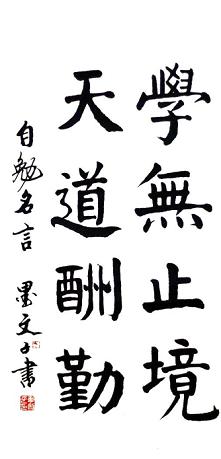 學無止境
天道酬勤
自勉名言 墨文子書